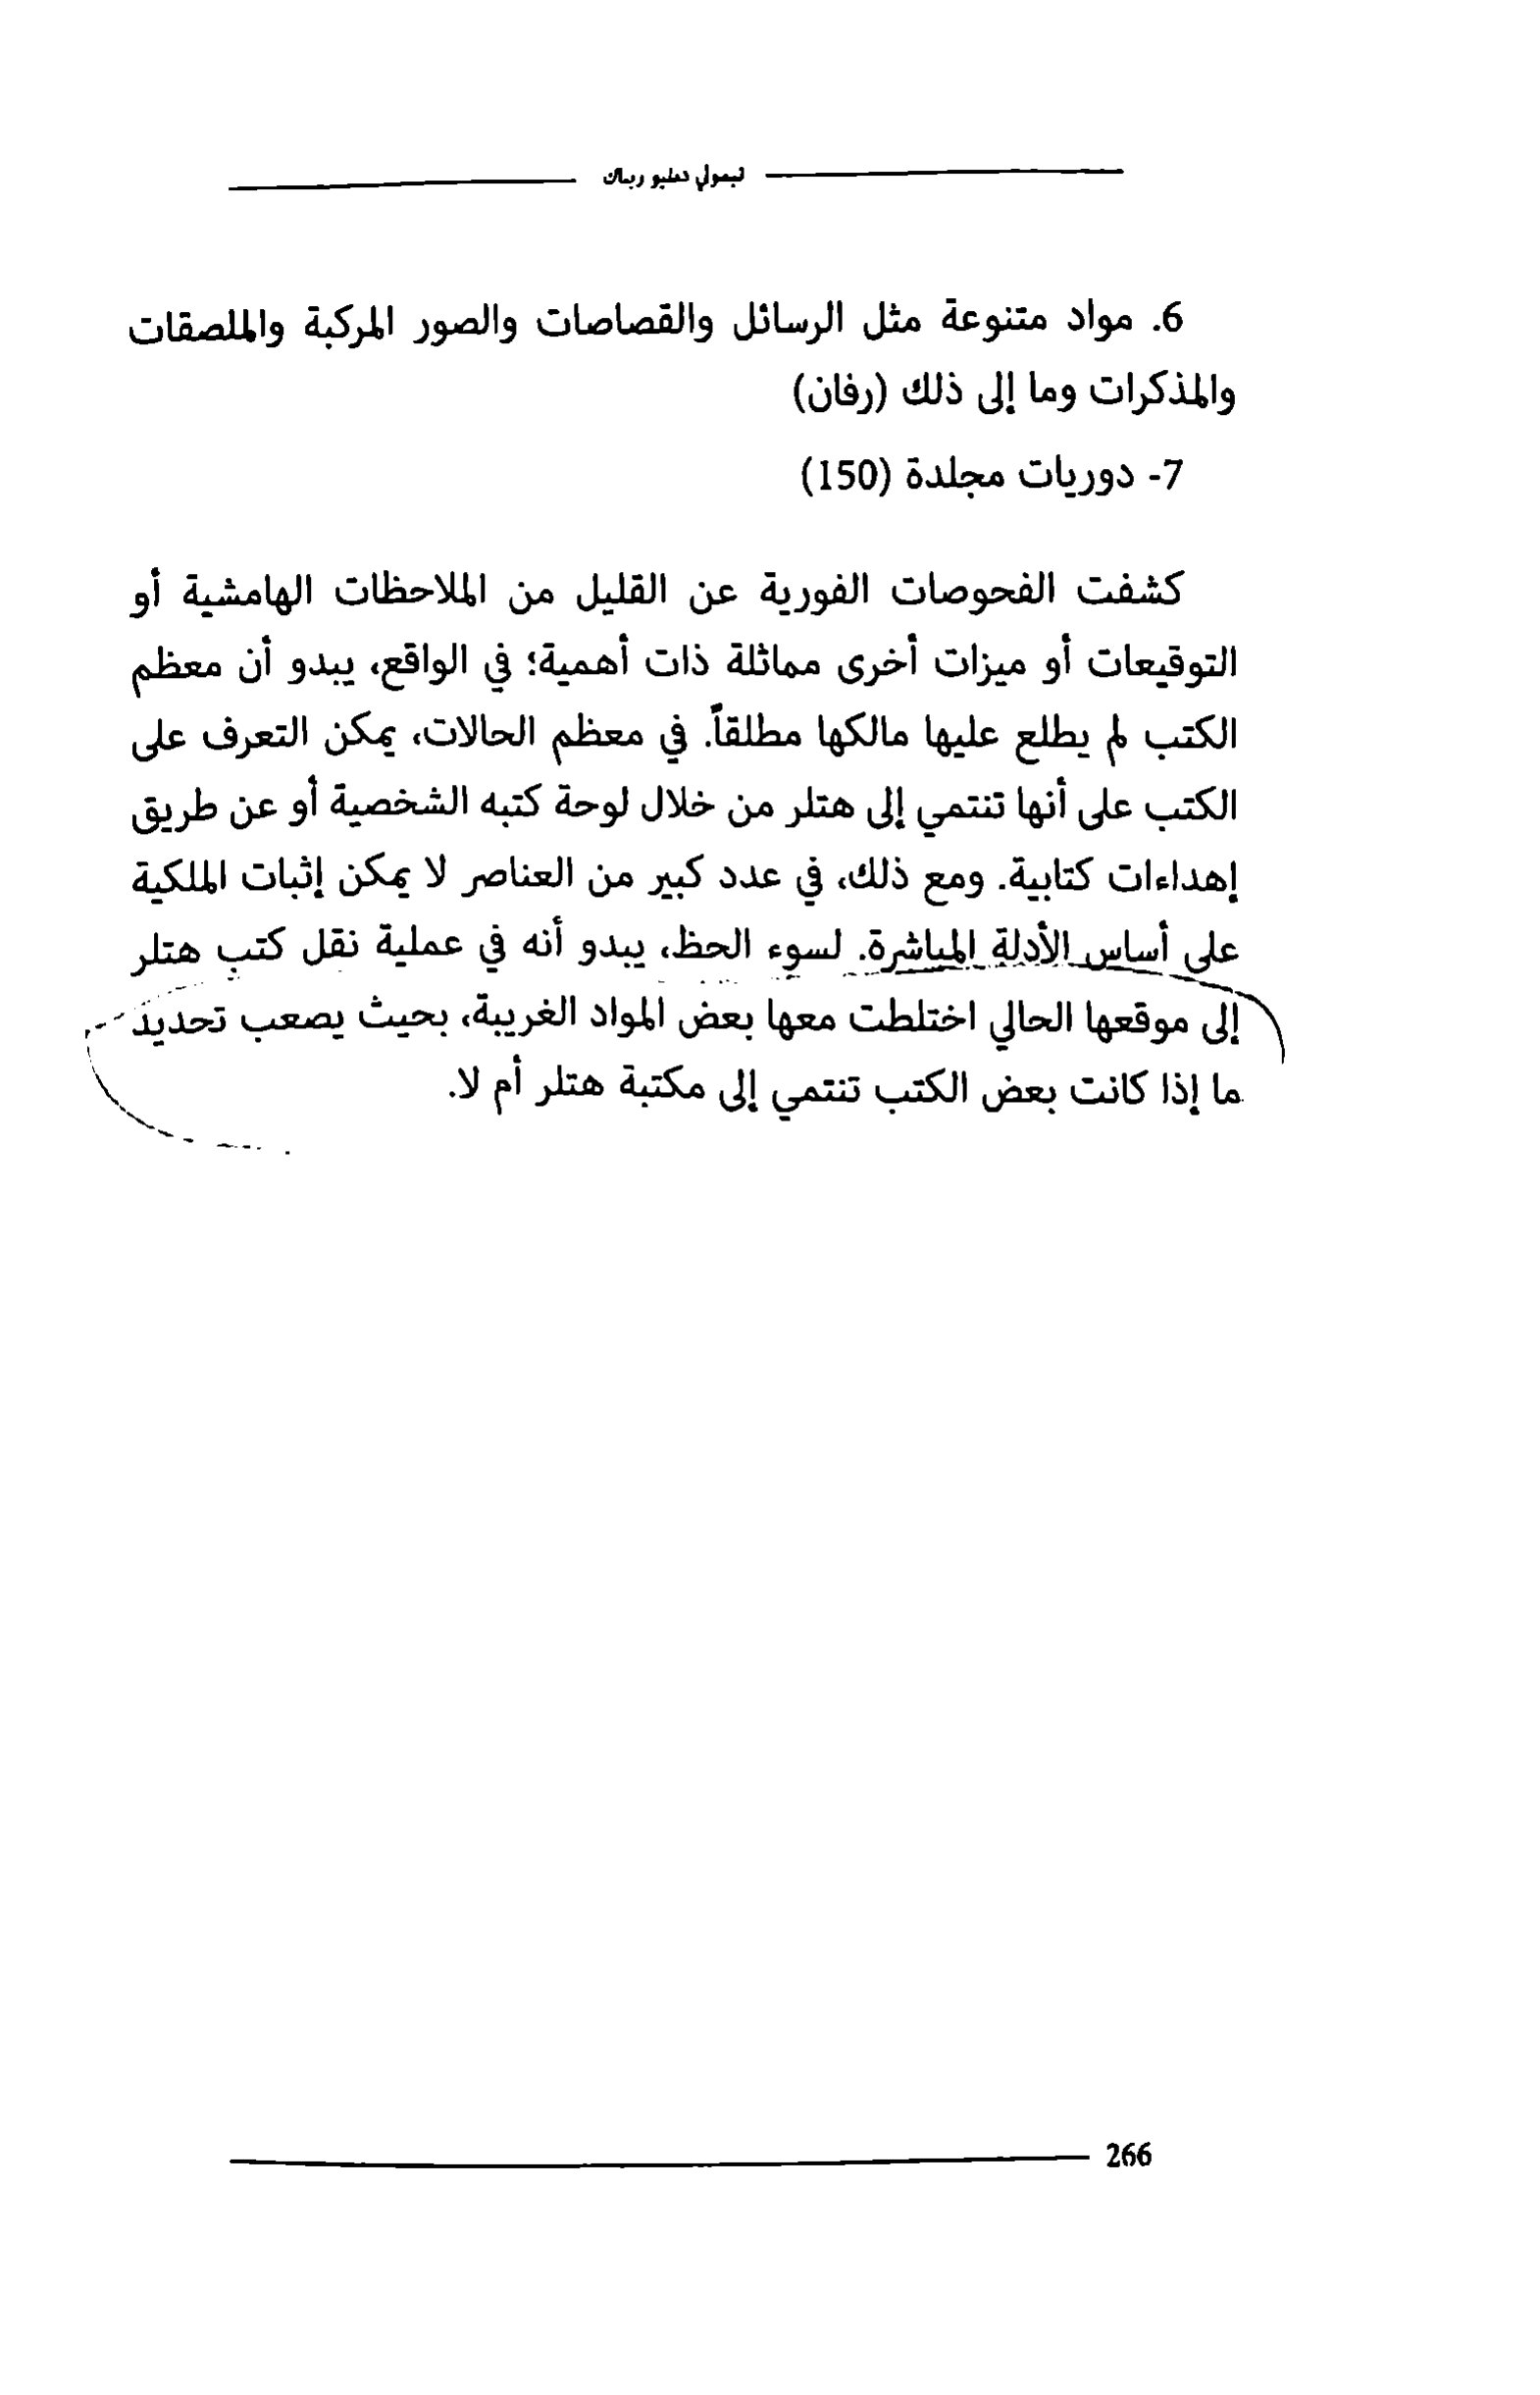 تيموثي دبليو ريباك
6. مواد متنوعة مثل الرسائل والقصاصات والصور المركبة والملصقات
والمذكرات وما إلى ذلك (رفان)
7- دوريات مجلدة (150)
كشفت الفحوصات الفورية عن القليل من الملاحظات الهامشية أو
التوقيعات أو ميزات أخرى مماثلة ذات أهمية؛ في الواقع، يبدو أن معظم
الكتب لم يطلع عليها مالكها مطلقاً. في معظم الحالات، يمكن التعرف على
الكتب على أنها تنتمي إلى هتلر من خلال لوحة كتبه الشخصية أو عن طريق
إهداءات كتابية. ومع ذلك، في عدد كبير من العناصر لا يمكن إثبات الملكية
على أساس الأدلة المباشرة. لسوء الحظ، يبدو أنه في عملية نقل كتب هتلر
إلى موقعها الحالي اختلطت معها بعض المواد الغريبة، بحيث يصعب تحديد
ما إذا كانت بعض الكتب تنتمي إلى مكتبة هتلر أم لا.
266